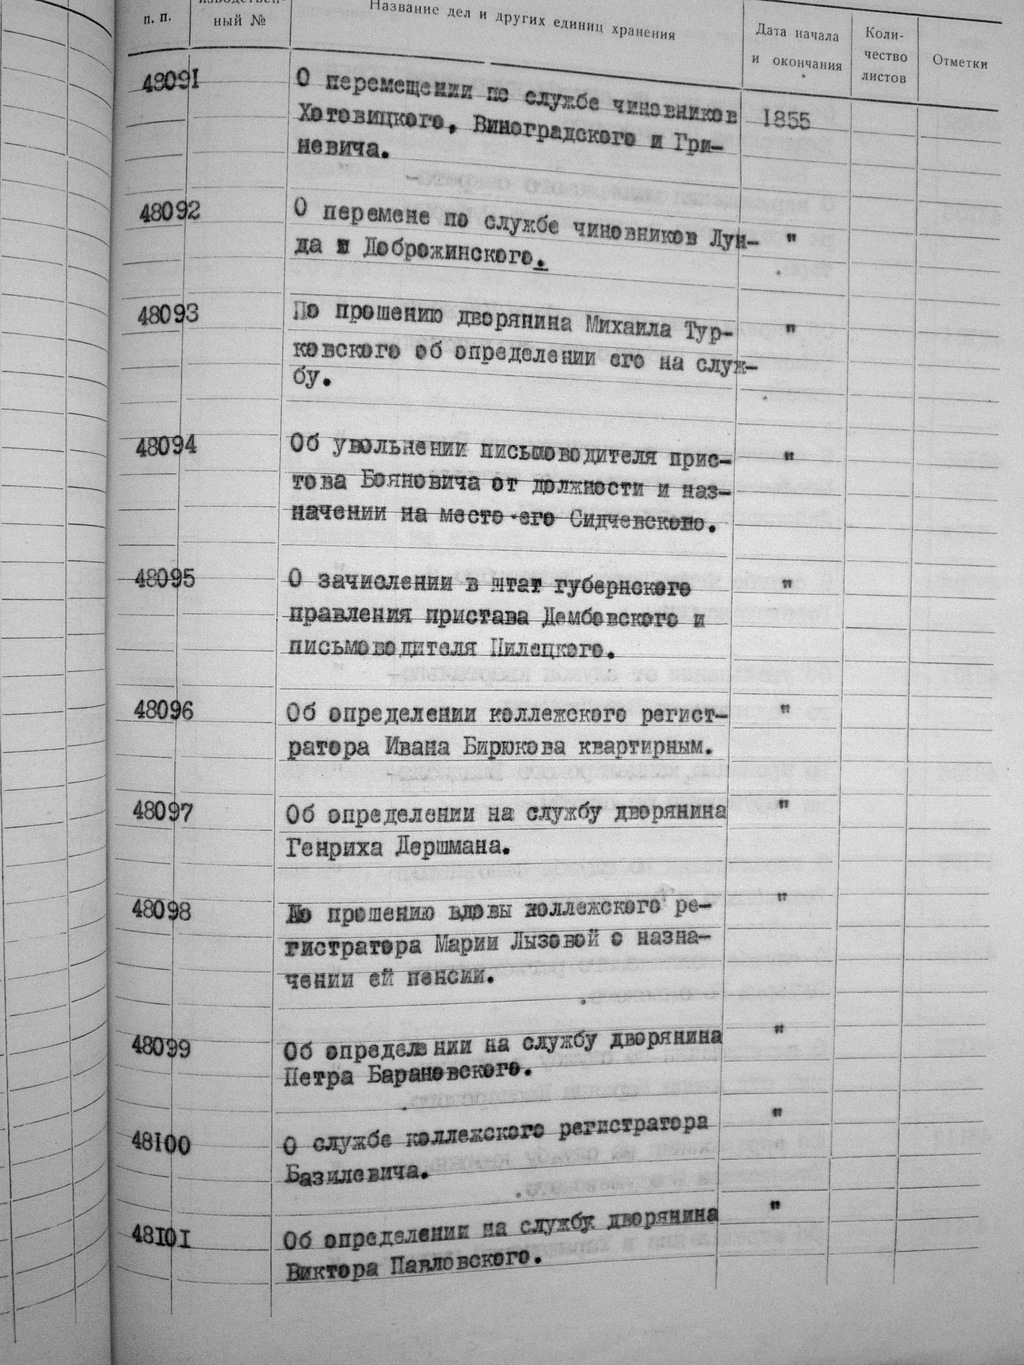 п. п.
ный №
Название дел и других единиц хранения
Дата начала
и окончания
Коли-
чество
листов
Отметки
48091
О перемещении по службе чиновников
Хотовицкого, Виноградского и Гри-
невича.
1855
48092
О перемене по службе чиновников Лун-
да и Доброжинского.
"
48093
По прошению дворянина Михаила Тур-
ковского об определении его на служ-
бу.
"
48094
Об увольнении письмоводителя прис-
това Бояновича от должности и наз-
начении на место его Сидчевского.
"
48095
О зачислении в штат губернского
правления пристава Дембовского и
письмоводителя Пилецкого.
"
48096
Об определении коллежского регист-
ратора Ивана Бирюкова квартирным.
"
48097
Об определении на службу дворянина
Генриха Дершмана.
"
48098
По прошению вдовы коллежского ре-
гистратора Марии Лызовой о назна-
чении ей пенсии.
"
48099
Об определении на службу дворянина
Петра Барановского.
"
48100
О службе коллежского регистратора
Базилевича.
"
48101
Об определении на службу дворянина
Виктора Павловского.
"